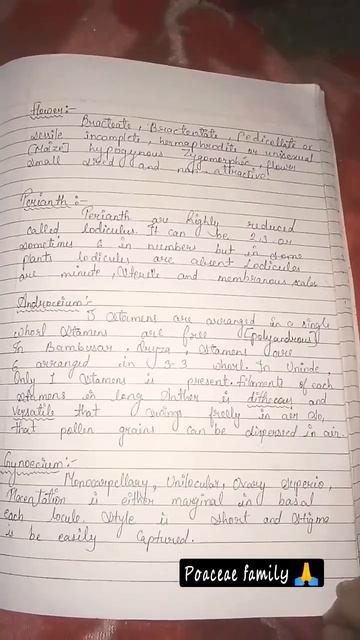 Flower:-
Bracteate, Bracteolate, Pedicellate or
sessile incomplete, hermaphrodite or unisexual
[Maize] hypogynous Zygomorphic, flower
small sized and non-attractive.
Perianth :-
Perianth are highly reduced
called lodicules. It can be 2,3 or
sometimes 6 in numbers but in some
plants lodicules are absent lodicules
are minute, and membranous scales
Androecium:-
3 stamens are arranged in a single
whorl stamens are free [polyandrous]
In Bambusa, Oryza, stamens are
6 arranged in 3-3 whorl. In
Only 1 stamens is present. Filaments of each
stamens is long Anther is dithecous and
versatile that swing freely in air So,
that pollen grains can be dispersed in air.
Gynoecium:-
Monocarpellary, Unilocular, Ovary superio,
Placentation is either marginal in basal
each locule. Style is short and stigma
is be easily captured.
Poaceae family 🙏